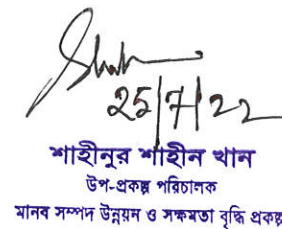 25/7/22
শাহীনুর শাহীন খান
উপ-প্রকল্প পরিচালক
মানব সম্পদ উন্নয়ন ও সক্ষমতা বৃদ্ধি প্রকল্প